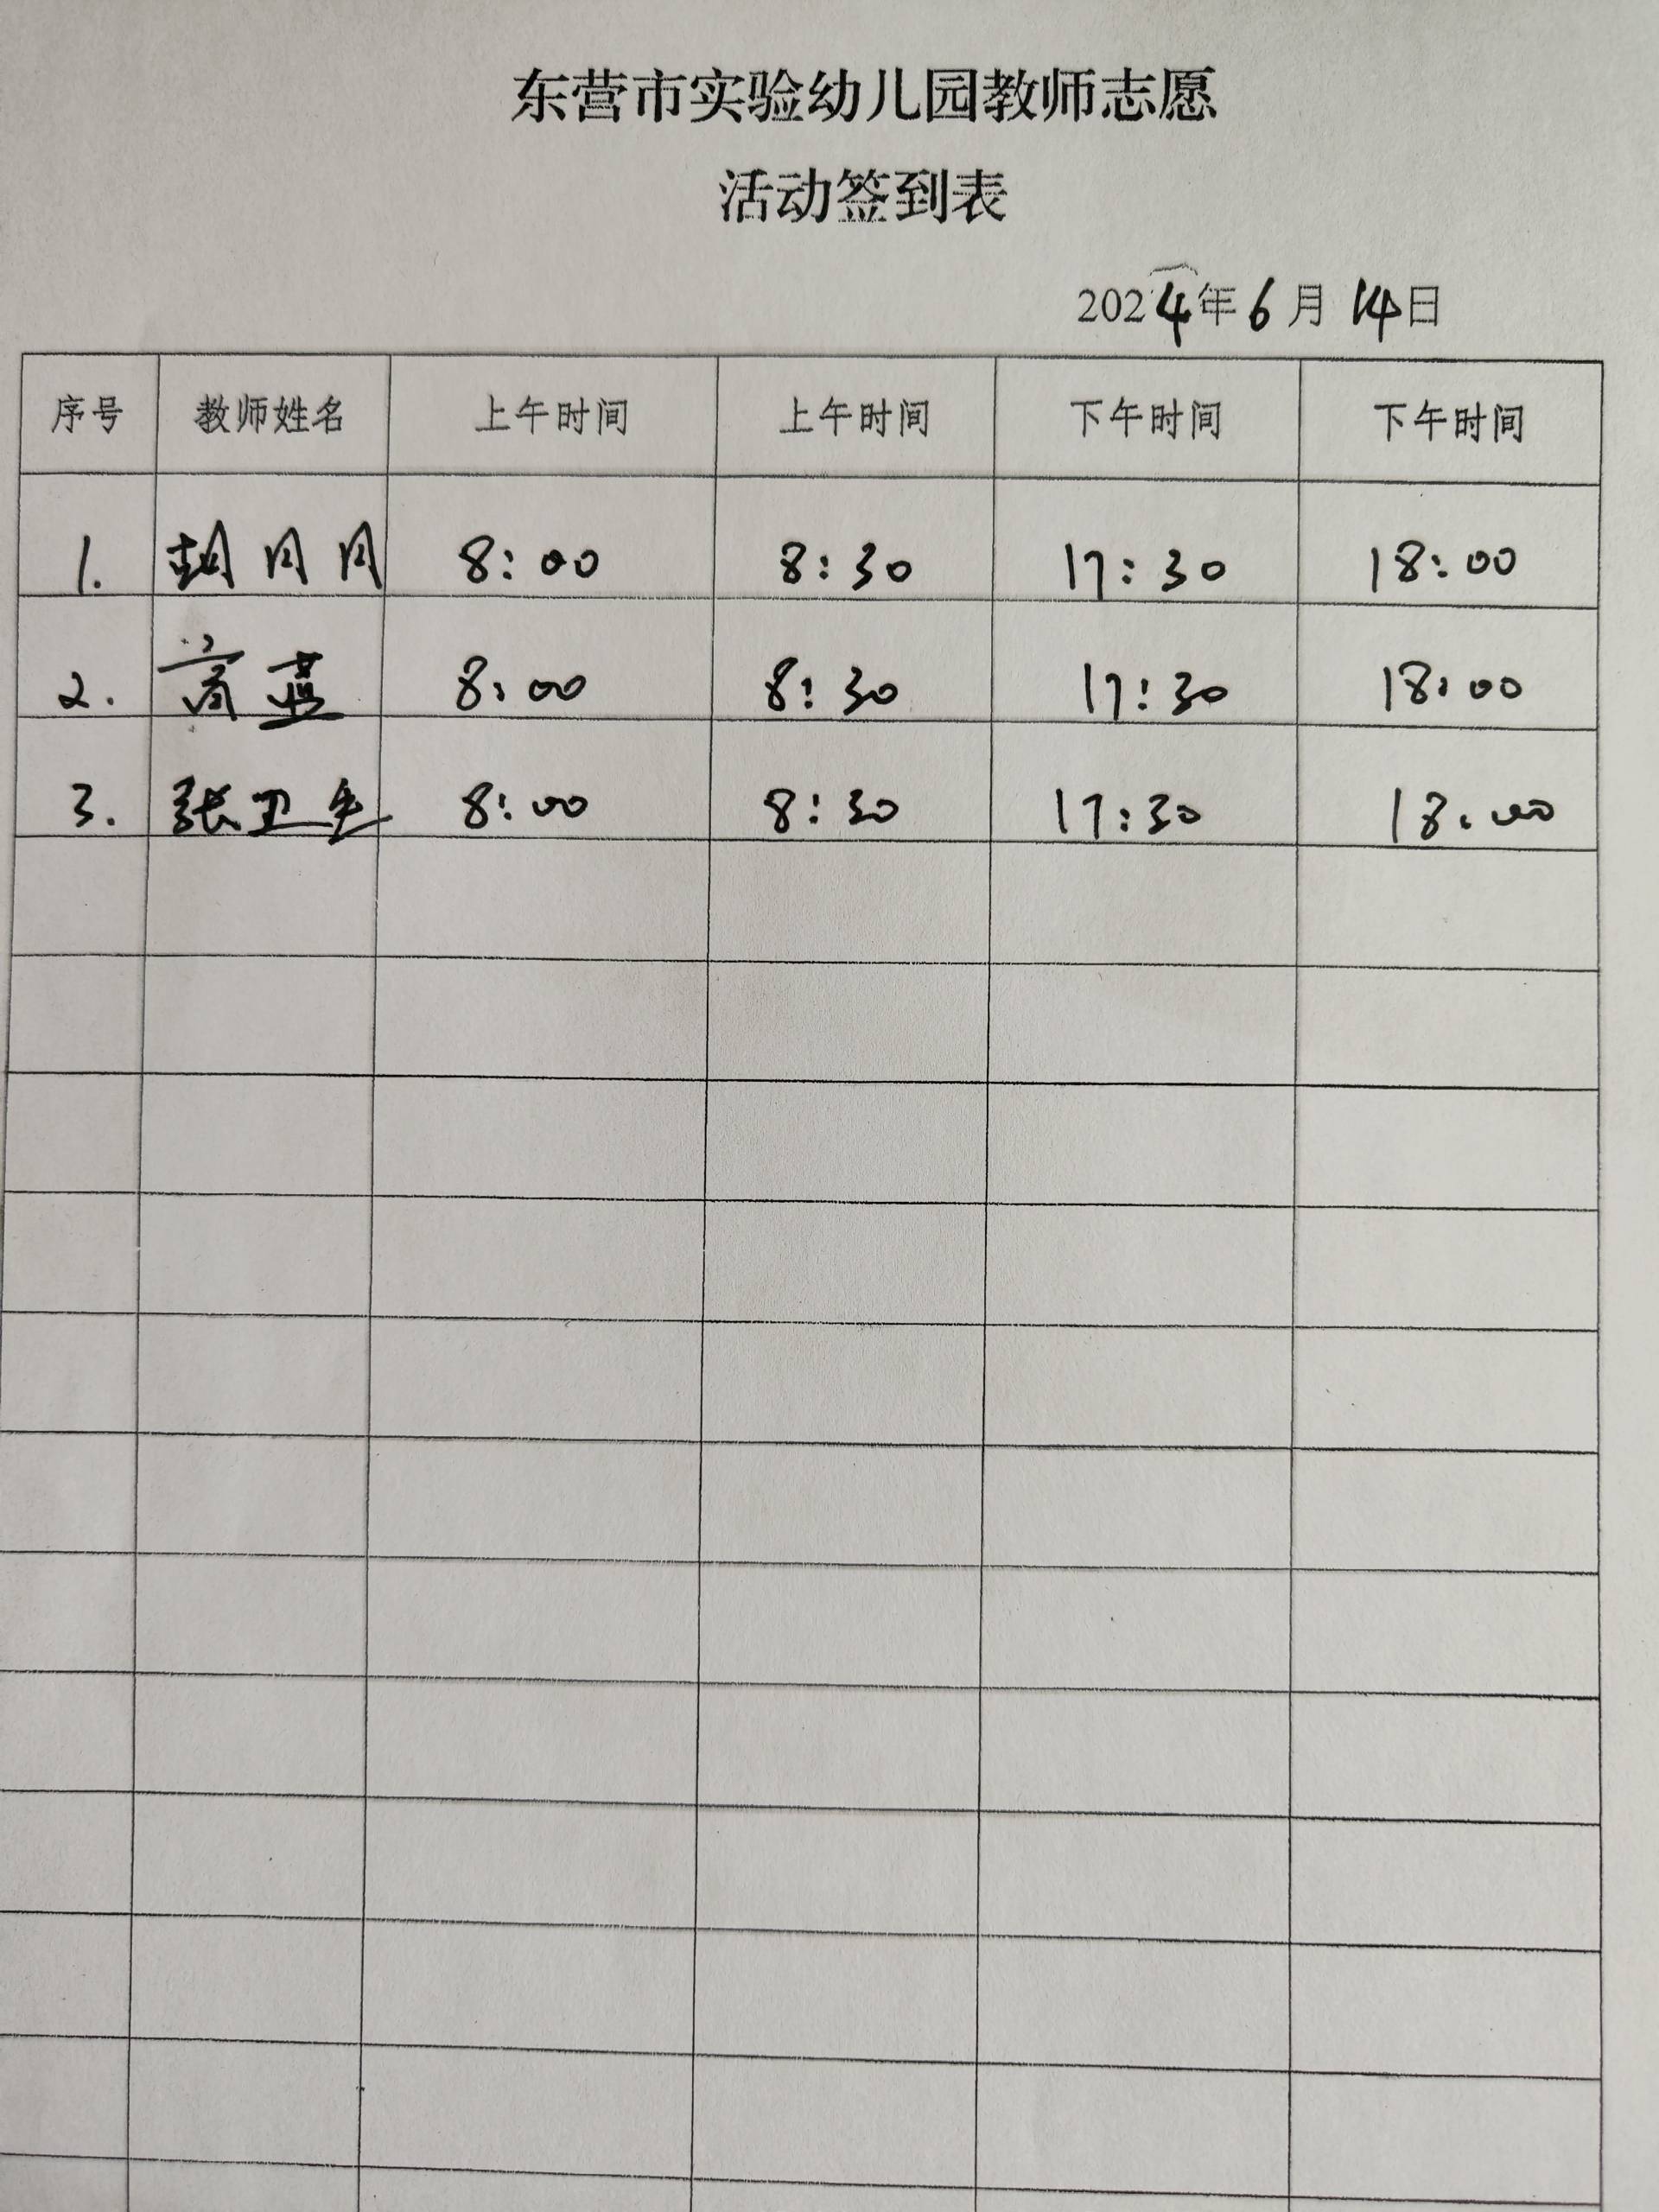 东营市实验幼儿园教师志愿
活动签到表
2024年6月14日
序号 教师姓名 上午时间 上午时间 下午时间 下午时间
1. 胡月月 8:00 8:30 17:30 18:00
2. 高蓝 8:00 8:30 17:30 18:00
3. 张卫 8:00 8:30 17:30 18:00